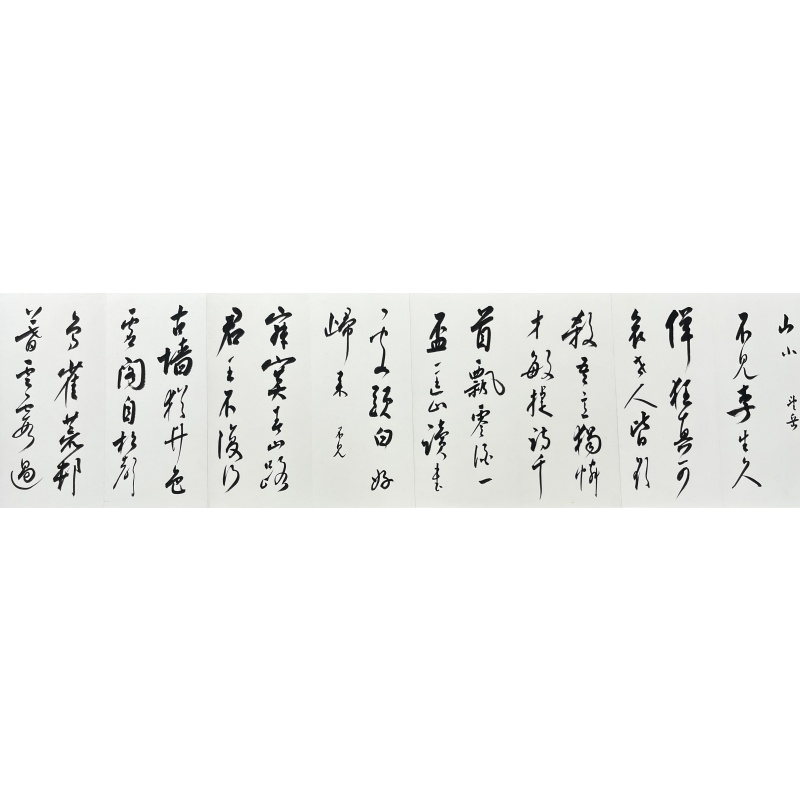 山小
不見李生久
佯狂真可
哀世人皆欲
殺吾意獨憐
才敏捷詩千
首飄零酒一
盃匡山讀書
處頭白好
歸来 不見
寂寞春山路
君王不復行
古墙猶竹色
虛閣自松聲
鳥雀荒邨
暮雲霞過